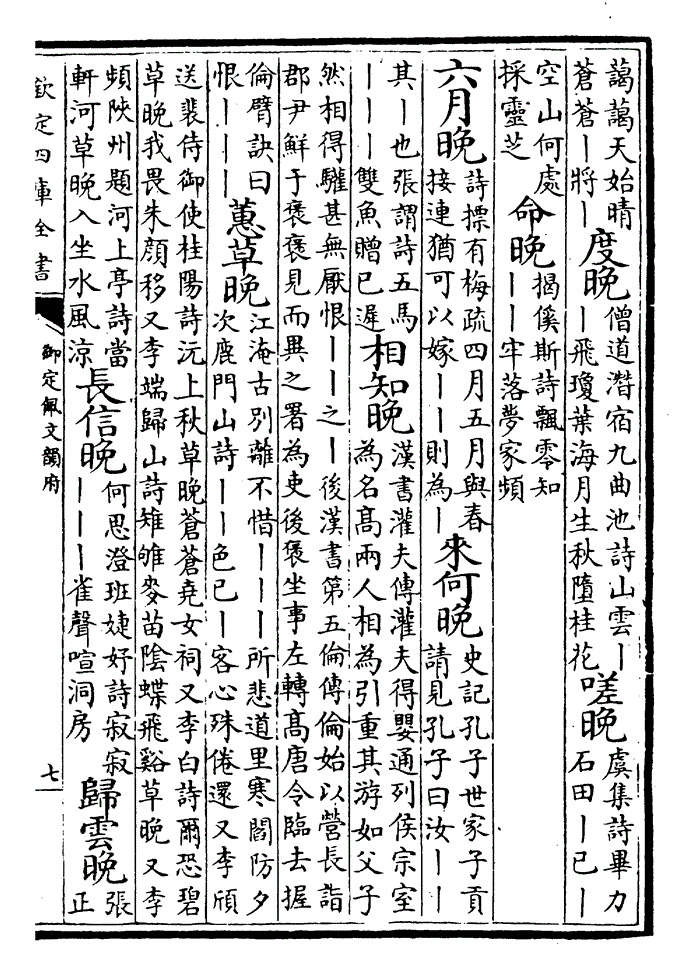 藹藹天始晴
蒼蒼丨將丨
度晚
僧道潛宿九曲池詩山雲丨
丨飛瓊葉海月生秋墮桂花
嗟晚
虞集詩畢力
石田丨已丨
空山何處
採靈芝
命晚
揭傒斯詩飄零知
丨丨牢落夢家頻
六月晚
詩摽有梅疏四月五月與春
接連猶可以嫁丨丨則為丨
來何晚
史記孔子世家子貢
請見孔子曰汝丨丨
其丨也張謂詩五馬
丨丨丨雙魚贈已遲
相知晚
漢書灌夫傳灌夫得嬰通列侯宗室
為名高兩人相為引重其游如父子
然相得驩甚無厭恨丨丨之丨後漢書第五倫傳倫始以營長詣
郡尹鮮于褒褒見而異之署為吏後褒坐事左轉高唐令臨去握
倫臂訣曰
恨丨丨丨
蕙草晚
江淹古別離不惜丨丨丨所悲道里寒閻防夕
次鹿門山詩丨丨色已丨客心殊倦還又李頎
送裴侍御使桂陽詩沅上秋草晚蒼蒼堯女祠又李白詩爾恐碧
草晚我畏朱顏移又李端歸山詩雉雊麥苗陰蝶飛谿草晚又李
頻陝州題河上亭詩當
軒河草晚入坐水風涼
長信晚
何思澄班婕妤詩寂寂
丨丨丨雀聲喧洞房
歸雲晚
張
正
欽定四庫全書
御定佩文韻府
七